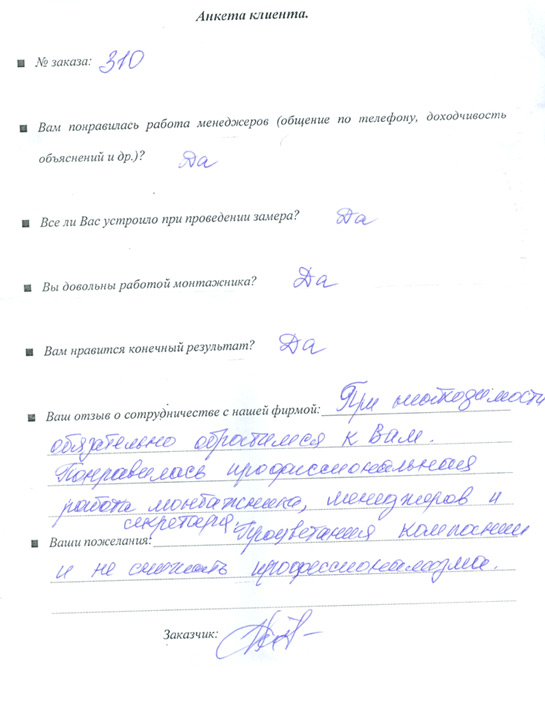 Анкета клиента.
№ заказа: 310
Вам понравилась работа менеджеров (общение по телефону, доходчивость
объяснений и др.)? Да
Все ли Вас устроило при проведении замера? Да
Вы довольны работой монтажника? Да
Вам нравится конечный результат? Да
Ваш отзыв о сотрудничестве с нашей фирмой: При необходимости
обязательно обратимся к Вам.
Понравилась профессиональная
работа монтажника, менеджеров и
секретаря
Ваши пожелания: Процветания компании
и не снижать профессионализма.
Заказчик: